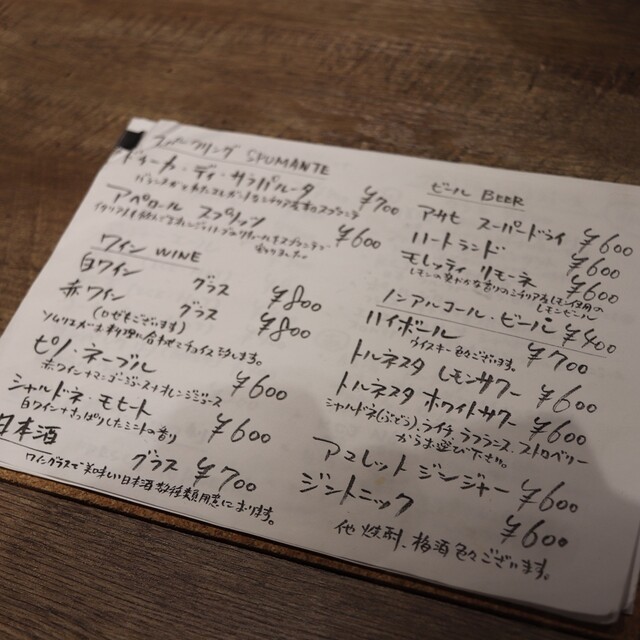 スパークリング SPUMANTE
ドゥーカ・ディ・サラパルータ ¥700
アペロール スプリッツ ¥600
ワイン WINE
白ワイン グラス ¥800
赤ワイン グラス ¥800
(ロゼもございます)
ソムリエがお料理に合わせてチョイスします。
ピノ・ネーブル ¥600
赤ワイン+オレンジジュース
シャルドネ・モヒート ¥600
白ワイン+さっぱりしたミントの香り
日本酒 グラス ¥700
ワイングラスで美味しい日本酒 数種類用意しております。
ビール BEER
アサヒ スーパードライ ¥600
ハートランド ¥600
モレッティ リモーネ ¥600
ノンアルコール・ビール ¥400
ハイボール ¥700
ウイスキー色々ございます。
トルネスタ レモンサワー ¥600
トルネスタ ホワイトサワー ¥600
シャルドネ(ぶどう)、ライチ、ラフランス、ストロベリー
からお選び下さい。
アマレット ジンジャー ¥600
ジントニック ¥600
他 焼酎、梅酒 色々ございます。